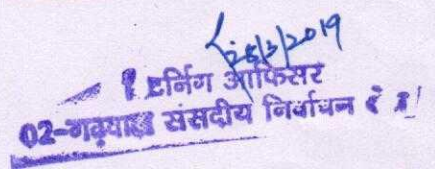 25/3/2019
रिटर्निग आफिसर
02-गढ़वाल संसदीय निर्वाचन